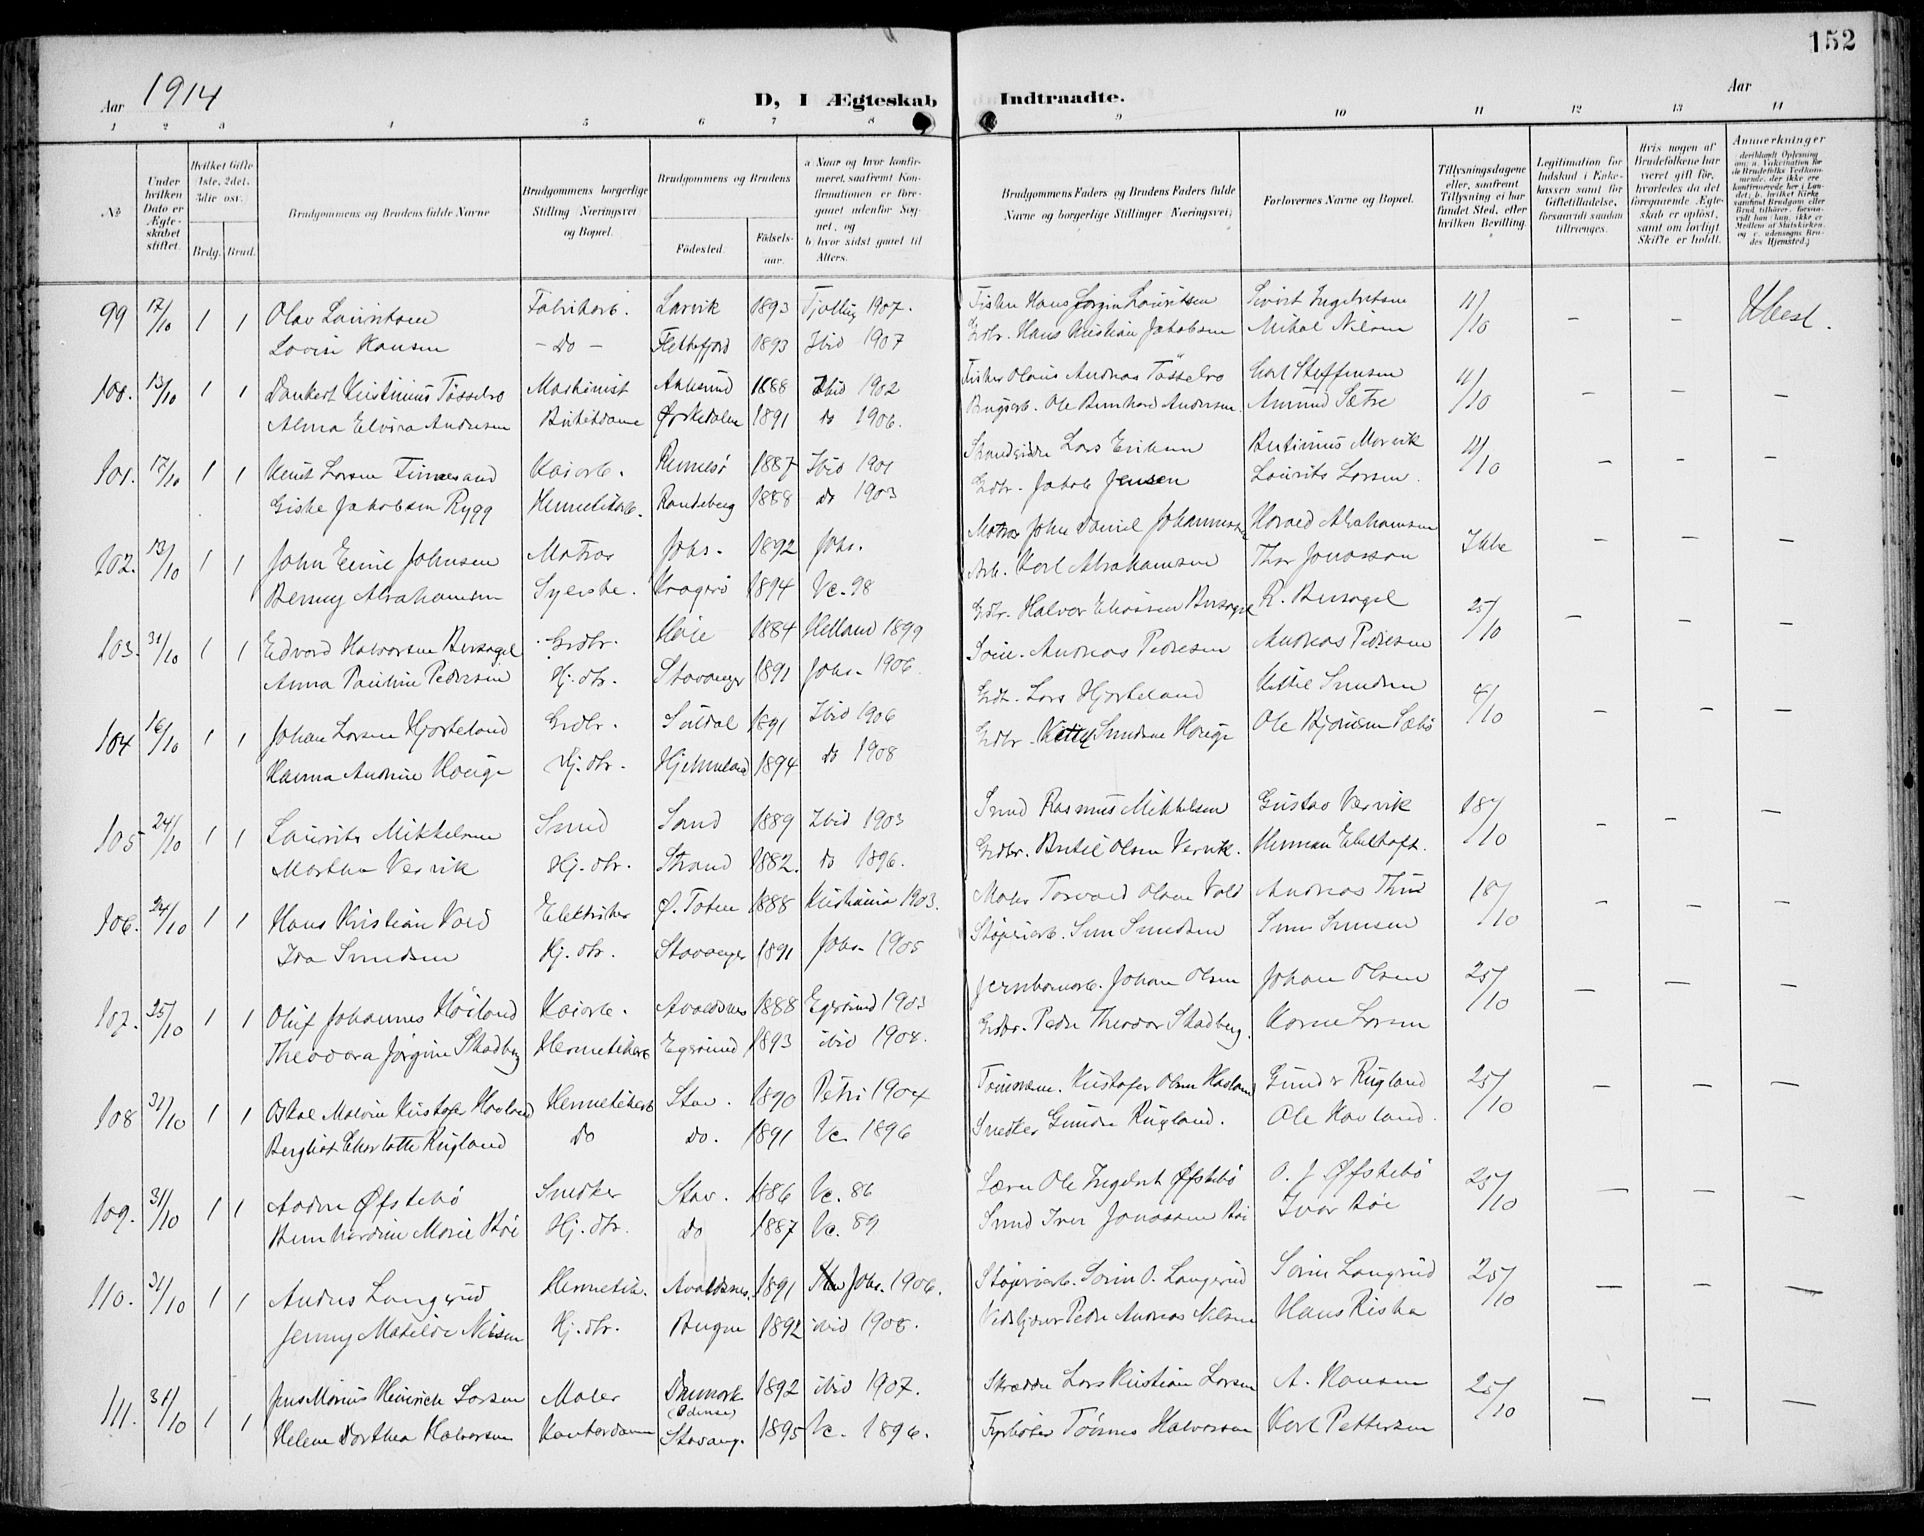 152
Aar 1914
D, I Ægteskab Indtraadte.
Aar
1 2 3 4 5 6 7 8 9 10 11 12 13 14
No
Under hvilken Dato er Ægteskabet stiftet.
Hvilket Gifte 1ste, 2det, 3die osv.
Brdg. Brud.
Brudgommens og Brudens fulde Navne
Brudgommens borgerlige Stilling Næringsvei og Bopæl.
Brudgommens og Brudens
Fødested. Fødselsaar.
a Naar og hvor konfirmeret, saafremt Konfirmationen er foregaaet udenfor Sognet, og
b hvor sidst gaaet til Alters.
Brudgommens Faders og Brudens Faders fulde Navne og borgerlige Stillinger Næringsvei;
Forlovernes Navne og Bopæl.
Tillysningsdagene eller, saafremt Tillysning ei har fundet Sted, efter hvilken Bevilling.
Legitimation for Indskud i Enkekassen samt for Giftetilladelse, forsaavidt saadan tiltrænges.
His nogen af Brudefolkene har været gift før, hvorledes da det foregaaende Ægteskab er opløst, samt om lovligt Skifte er holdt.
Anmærkninger
99 17/10 1 1 Olav Lauritsen Fabrikarb. Larvik 1893 Tjølling 1907. Fisker Hans Jørgin Lauritsen Sivert Ingebretsen 11/10 – –
Lovise Hansen – Do – Flekkefjord 1893 Ibid 1907 Grdbr. Hans Kristian Jakobsen Mikal Nilsen
100. 13/10 1 1 Dankert Kristinius Tøsselvo Maskinist 1888 Ibid 1902 Fisker Olaus Andreas Tøsselvo Carl Steffensen 11/10 – – –
Alma Elvira Andersen Butikdame Ørkedalen 1891 do 1906. Ole Bernhard Andersen. Amund Sætre
101. 17/10 1 1 Knut Larsen Finnesand Kaiarb. Rennesø 1887 Ibid 1901 Lars Eriksen 11/10 – – –
Giske Jakobsen Rygg Hermetikarb. Randeberg 1888 do 1903 Grdbr. Jakob Jensen Laurits Larsen.
102. 13/10 1 1 John Emil Johnsen Matros Johs. 1892 Johs. Matros John Daniel Johannessen Harald Abrahamsen Ikke – – –
Benny Abrahamsen Syerske. Kragerø 1894 Vc. 98 Arb. Karl Abrahamsen Thor Jonassen
103. 31/10 1 1 Edvard Halvorsen Bersagel Grdbr. Høle 1884 Helland 1899 Grdbr. Halvor Eliassen Bersagel R. Bersagel 25/10 – – –
Anna Pauline Pedersen Hj. dtr. Stavanger 1891 Johs. 1906 Andreas Pedersen Andreas Pedersen
104 16/10 1 1 Johan Larsen Hjorteland Grdbr. Suldal 1891 Ibid 1906 Grdbr. Lars Hjorteland Kittil Smedsen 4/10 – – –
Hanna Andrine Hauge Hj. dtr. Hjelmeland 1894 do 1908 Grdbr. Hauge Ole Bjørnsen Sæbø
105 24/10 1 1 Laurits Mikkelsen Smed Sand 1889 Ibid 1903 Smed Rasmus Mikkelsen Gustav Vervik 18/10 – – –
Martha Vervik Hj. dtr. Strand 1882. do 1896. Grdbr. Bertil Olsen Vervik. Herman Ekeltoft.
106. 24/10 1 1 Hans Kristian Vold Elektriker Ø. Toten 1888 Kristiania 1903. Maler Torvald Olsen Vold Andreas Thu 18/10 – – –
Ida Smedsen Hj. dtr. Stavanger 1891 Johs. 1905 Støperiarb.
107. 25/10 1 1 Oluf Johannes Høiland Kaiarb. Avaldsnes 1888 Egersund 1903 Jernbanearb. Johan Olsen Johan Olsen 25/10 – – –
Theodora Jørgine Skadberg Hermetikarb. Egersund 1893 ibid 1908. Grdbr. Peder Theodor Skadberg. Karen Larsen
108 31/10 1 1 Oskar Malvin Kristofer Havland Hermetikarb Stav. 1890 Petri 1904 Kristofer Olsen Havland Gunder Rugland 25/10 – – –
Bergliot Charlotte Rugland Do do. 1891 Vc. 1896 Snedker Gunder Rugland. Ole Havland.
109. 31/10 1 1 Øfstebø Snedker Stav. 1886 Vc. 86 Lærer Ole Ingebret Øfstebø O. J. Øfstebø 25/10 – – –
Bernhardine Marie Bøe Hj. dtr. Do 1887 Vc. 89 Smed Iver Jonassen Bøe Ivar Bøe
110. 31/10 1 1 Anders Langerud Hermetik. Avaldsnes. 1891 Johs. 1906. Støperiarb. Sørin O. Langerud Sørin Langerud 25/10 – – –
Jenny Matilde Nilsen Hj. dtr. Bergen 1892 ibid 1908. Peder Andreas Nilsen Hans Riska
111. 31/10 1 1 Jens Marius Heinrich Larsen Maler Danmark (Odense) 1892 ibid 1907. Skrædder Lars Kristian Larsen A. Hansen 25/10 – – –
Helene Dorthea Halvorsen Kontordame Stavang. 1895 Vc. 1896. Fyrbøter Tønnes Halvorsen Karl Pettersen